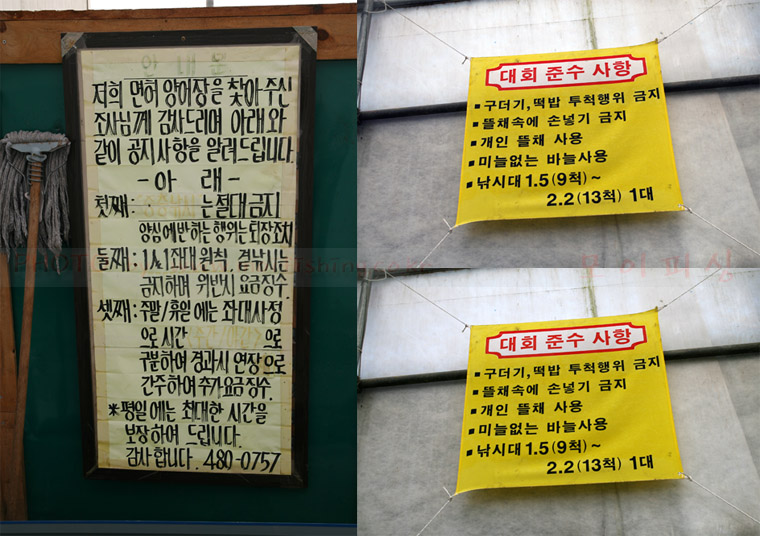 안 내 문
저희 면허 양어장을 찾아 주신
조사님께 감사드리며 아래와
같이 공지사항을 알려드립니다.
- 아 래 -
첫째 : 는 절대 금지
양심에 반하는 행위는 퇴장 조치
둘째 : 1人 1좌대 원칙. 곁낚시는
금지하며 위반시 요금징수.
셋째 : 주말/휴일에는 좌대사정
으로 시간 으로
구분하여 경과시 연장으로
간주하여 추가요금 징수.
*평일에는 최대한 시간을
보장하여 드립니다.
감사합니다. 480-0757
대회 준수 사항
■ 구더기, 떡밥 투척행위 금지
■ 뜰채속에 손넣기 금지
■ 개인 뜰채 사용
■ 미늘없는 바늘사용
■ 낚시대 1.5 (9척) ~
2.2 (13척) 1대
대회 준수 사항
■ 구더기, 떡밥 투척행위 금지
■ 뜰채속에 손넣기 금지
■ 개인 뜰채 사용
■ 미늘없는 바늘사용
■ 낚시대 1.5 (9척) ~
2.2 (13척) 1대